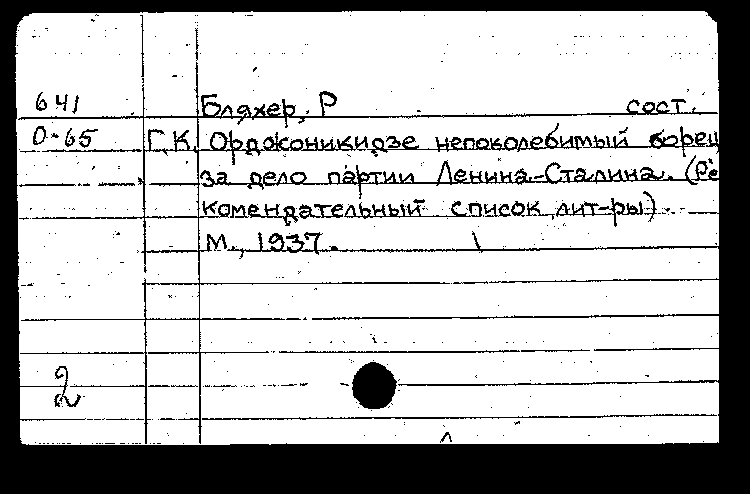 641 Бляхер, Р сост.
О-65 Г.К. Орджоникидзе непоколебимый борец
за дело партии Ленина-Сталина. (Ре
комендательный список лит-ры).
М., 1937.
2